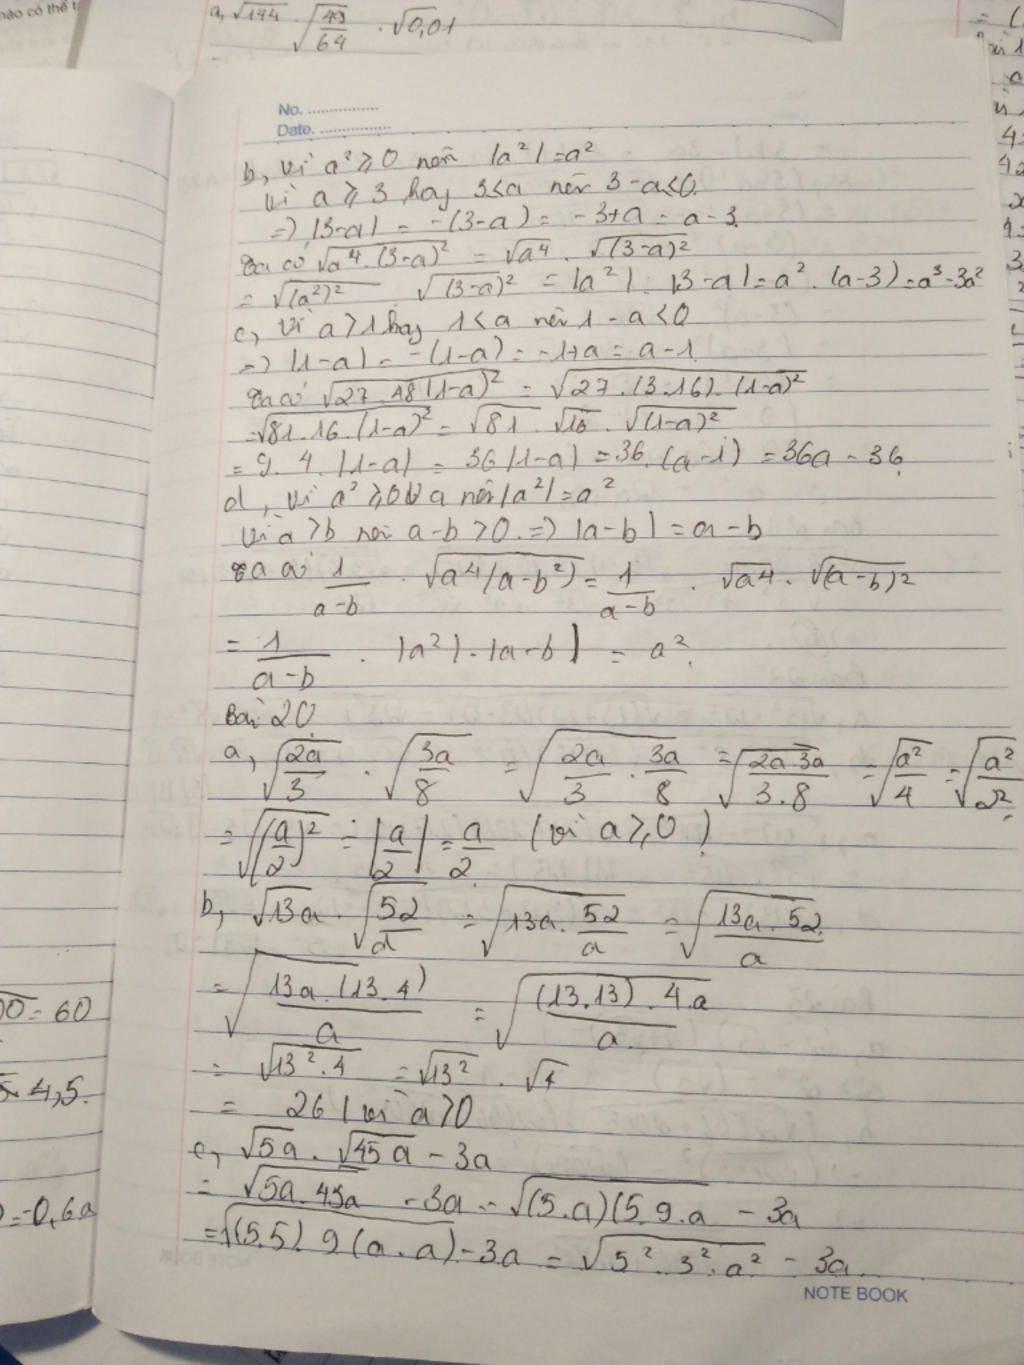 nào có thể t
a, √144 · √(49/64) · √0,01
No. ................
Date. ................
b, Vì a² ⩾ 0 nên |a²| = a²
Vì a ⩾ 3 hay 3 ≤ a nên 3 - a ≤ 0
=> |3-a| = -(3-a) = -3+a = a-3.
Ta có √(a⁴.(3-a)²) = √a⁴ . √((3-a)²)
= √((a²)²) . √((3-a)²) = |a²| . |3-a| = a² . (a-3) = a³-3a²
c, Vì a > 1 hay 1 < a nên 1 - a < 0
=> |1-a| = -(1-a) = -1+a = a-1.
Ta có √(27.48(1-a)²) = √(27.(3.16).(1-a)²)
= √(81.16.(1-a)²) = √81 . √16 . √((1-a)²)
= 9.4.|1-a| = 36|1-a| = 36.(a-1) = 36a - 36.
d, Vì a² ⩾ 0 ∀ a nên |a²| = a²
Vì a > b nên a-b > 0. => |a-b| = a-b
Ta có 1/(a-b) . √(a⁴(a-b²)) = 1/(a-b) . √a⁴ . √((a-b)²)
= 1/(a-b) . |a²| . |a-b| = a².
Bài 20
a, √(2a/3) . √(3a/8) = √(2a/3 . 3a/8) = √((2a.3a)/(3.8)) = √(a²/4) = √(a²/2²)
= √((a/2)²) = |a/2| = a/2 (vì a ⩾ 0)
b, √13a . √(52/a) = √(13a . 52/a) = √((13a.52)/a)
= √((13a.(13.4))/a) = √(((13.13).4.a)/a)
= √(13².4) = √13² . √4
= 26 (vì a > 0
c, √5a . √45a - 3a
= √(5a.45a) - 3a = √((5.a)(5.9.a) - 3a
= √((5.5).9(a.a) - 3a = √(5².3².a²) - 3a
= 60
4,5.
= -0,6a
NOTE BOOK